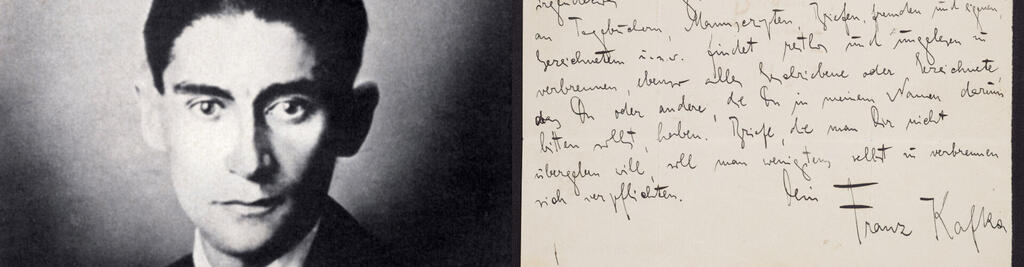 an Tagebüchern, Manuscripten, Briefen, fremden und eignen,
Gezeichnetem u.s.w. findet restlos und ungelesen zu
verbrennen, ebenso alles Geschriebene oder Gezeichnete,
das Du oder andere, die Du in meinem Namen darum
bitten sollst, haben. Briefe, die man Dir nicht
übergeben will, soll man wenigstens selbst zu verbrennen
sich verpflichten.
Dein Franz Kafka